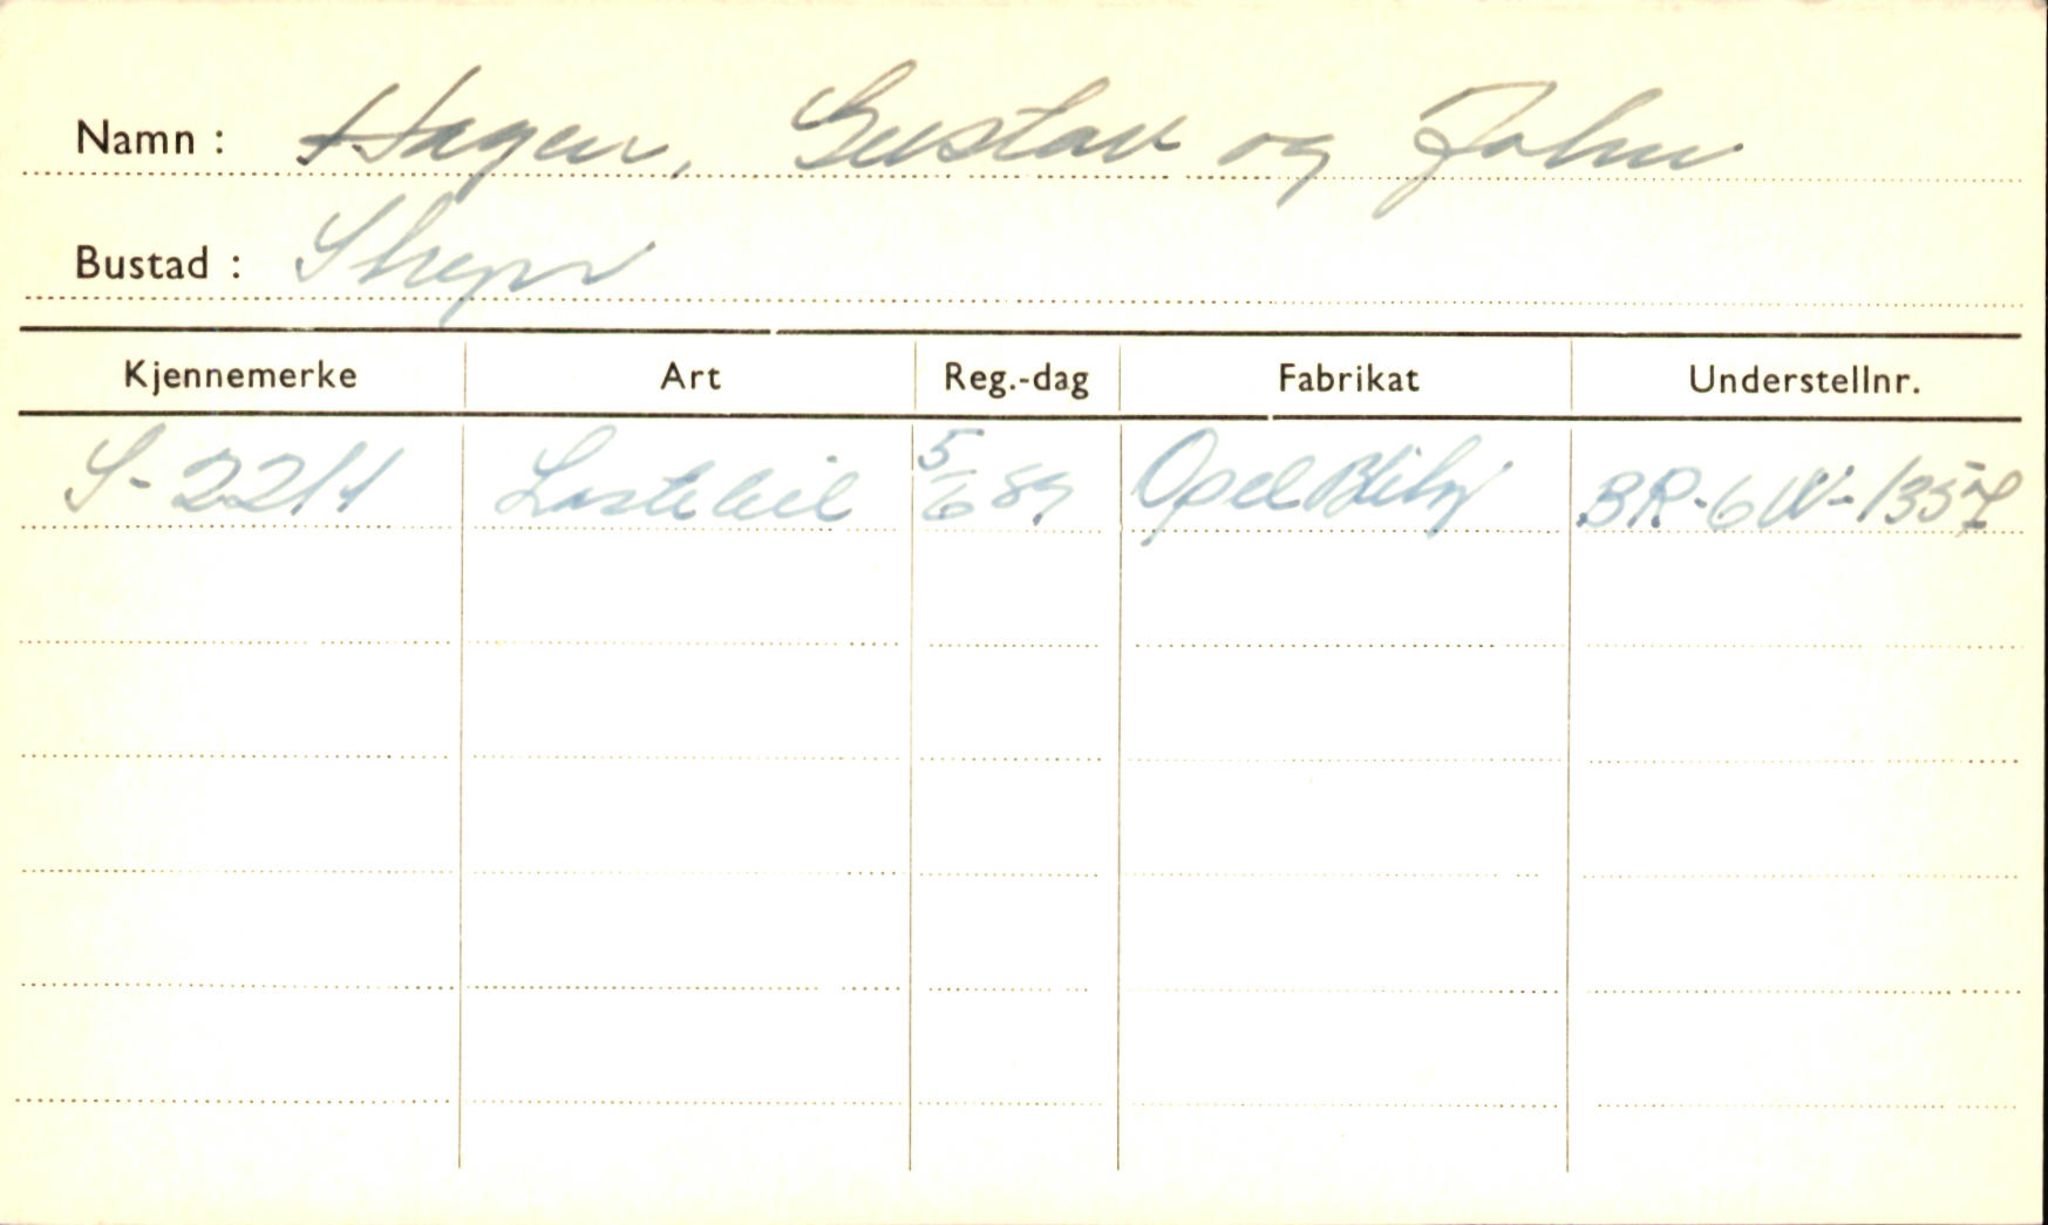 Namn : Hagen, Gustav og John
Bustad : Stryn
Kjennemerke Art Reg.-dag Fabrikat Understellnr.
S-2211 Lastebil 5/6 59 Opel Blitz BR-6W-1357